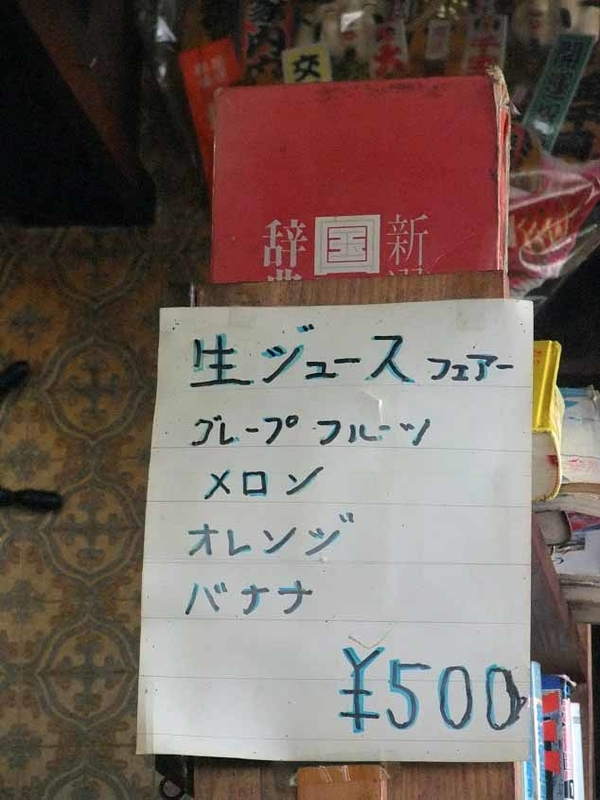 家内
交
開運
新選
国
辞典
生ジュース フェアー
グレープ フルーツ
メロン
オレンジ
バナナ
¥500